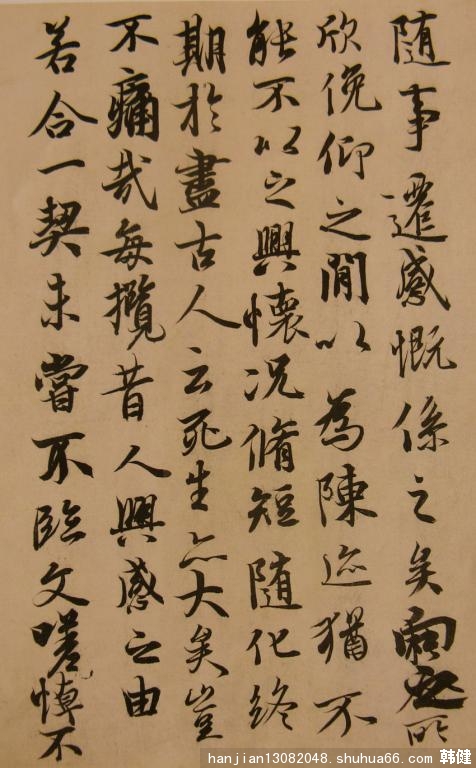 随事遷感慨係之矣向之所
欣俛仰之間以為陳迹猶不
能不以之興懷况脩短随化終
期於盡古人云死生亦大矣豈
不痛哉每攬昔人興感之由
若合一契未嘗不臨文嗟悼不
hanjian13082048.shuhua66.com/韩健